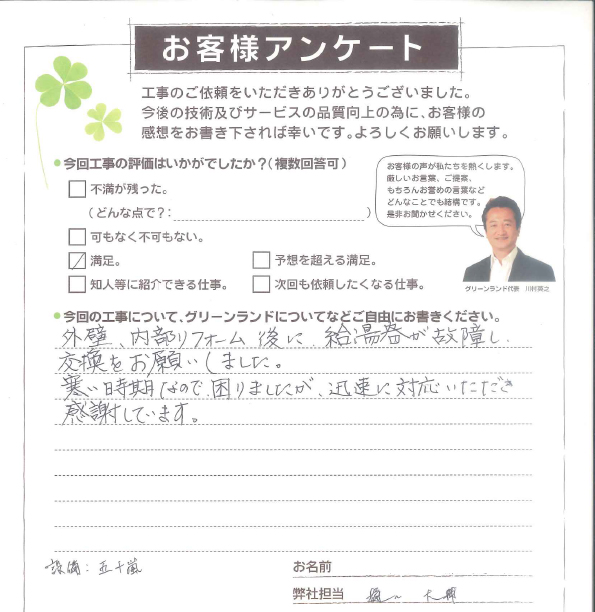 お客様アンケート
工事のご依頼をいただきありがとうございました。
今後の技術及びサービスの品質向上の為に、お客様の
感想をお書き下されば幸いです。よろしくお願いします。
●今回工事の評価はいかがでしたか？（複数回答可）
不満が残った。
（どんな点で？：　　　）
可もなく不可もない。
満足。
予想を超える満足。
知人等に紹介できる仕事。
次回も依頼したくなる仕事。
お客様の声が私たちを熱くします。
厳しいお言葉、ご提案、
もちろんお誉めの言葉など
どんなことでも結構です。
是非お聞かせください。
グリーンランド代表　川村英之
●今回の工事について、グリーンランドについてなどご自由にお書きください。
外壁、内部リフォーム後に、給湯器が故障し、
交換をお願いしました。
寒い時期なので、困りましたが、迅速に対応いただき
感謝しています。
設備：五十嵐
お名前
弊社担当